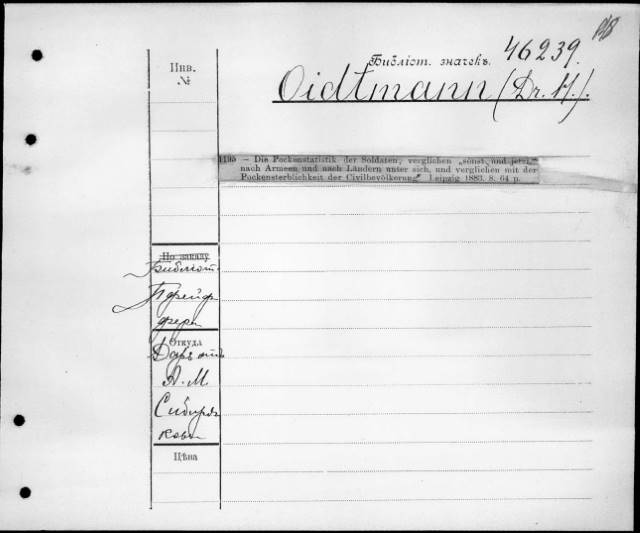 148
Библіот. значекъ. 46239.
Инв.
№
Oidtmann (Dr. H.).
1195 – Die Pockenstatistik der Soldaten, verglichen „sonst und jetzt,“
nach Armeen und nach Ländern unter sich, und verglichen mit der
Pockensterblichkeit der Civilbevölkerung. Leipzig 1883. 8. 64 p.
По заказу
Библіот.
Пфейф
фера
Откуда
Даръ отъ
А. М.
Сибиря
кова
Цѣна